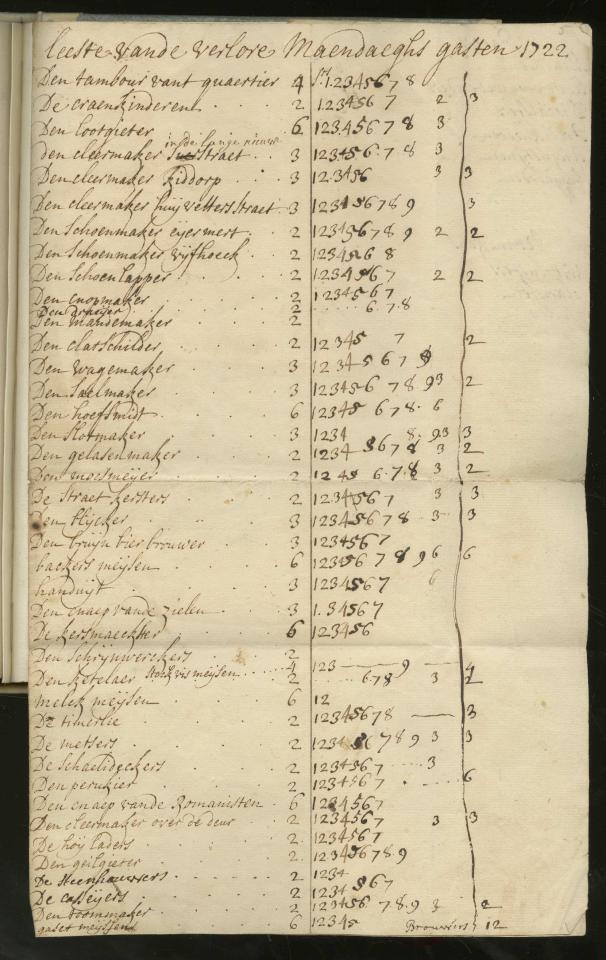 leeste vande verlore Maendaeghs gasten 1722
Den tambour vant quaertier 4 12345678
De craenkinderen 2 1234567 2 3
Den lootgieter 6 12345678 3
in de lange nieuw
den cleermaker straet 3 12345678 3
Den cleermaker Riddorp 3 123456 3 3
Den cleermaker huijvetters straet 3 123456789 3
Den Schoenmaker eijermert 2 123456789 2 2
Den Schoenmaker vijfhoeck 2 1234568
Den Schoenlapper 2 1234567 2 2
Den cnopmaker 2 1234567
Den draeijer 2 6.7.8
Den mandemaker 2
Den claeschilder 2 12345 7 2
Den wagemaker 3 12345678
Den Saelmaker 3 123456789 3 2
Den hoefsmidt 6 12345 678 6
Den Slotmaker 3 1234 8 9 3 3
Den gelasenmaker 2 1234 5678 3 2
Den moesmeijer 2 1245 678 3 2
De Straet kersters 2 1234567 3 3
Den blijcker 3 12345678 3 3
Den bruijn bier brouwer 3 1234567
backers meijsen 6 123456789 6 6
handuijt 3 1234567 6
Den cnaep vande zielen 3 1.34567
De kersmaeckster 6 123456
Den Schrijnwerckers 2
Stockvismeijsen 4 123 9 4
Den ketelaer 2 678 3 2
melck meijsen 6 12
De timerlie 2 12345678 3
De metsers 2 123456789 3 3
De Schaelideckers 2 1234567 3
Den perukier 2 1234567 6
Den cnaep vande Romanisten 6 1234567
Den cleermaker over de deur 2 1234567 3 3
De hoij laders 2 1234567
Den geilgieter 2 123456789
De Steenhouwers 2 1234
De casseijers 2 1234 567
Den boommaker 2 123456 789 3 2
gaset meijssen 6 12345 Brouwers 12